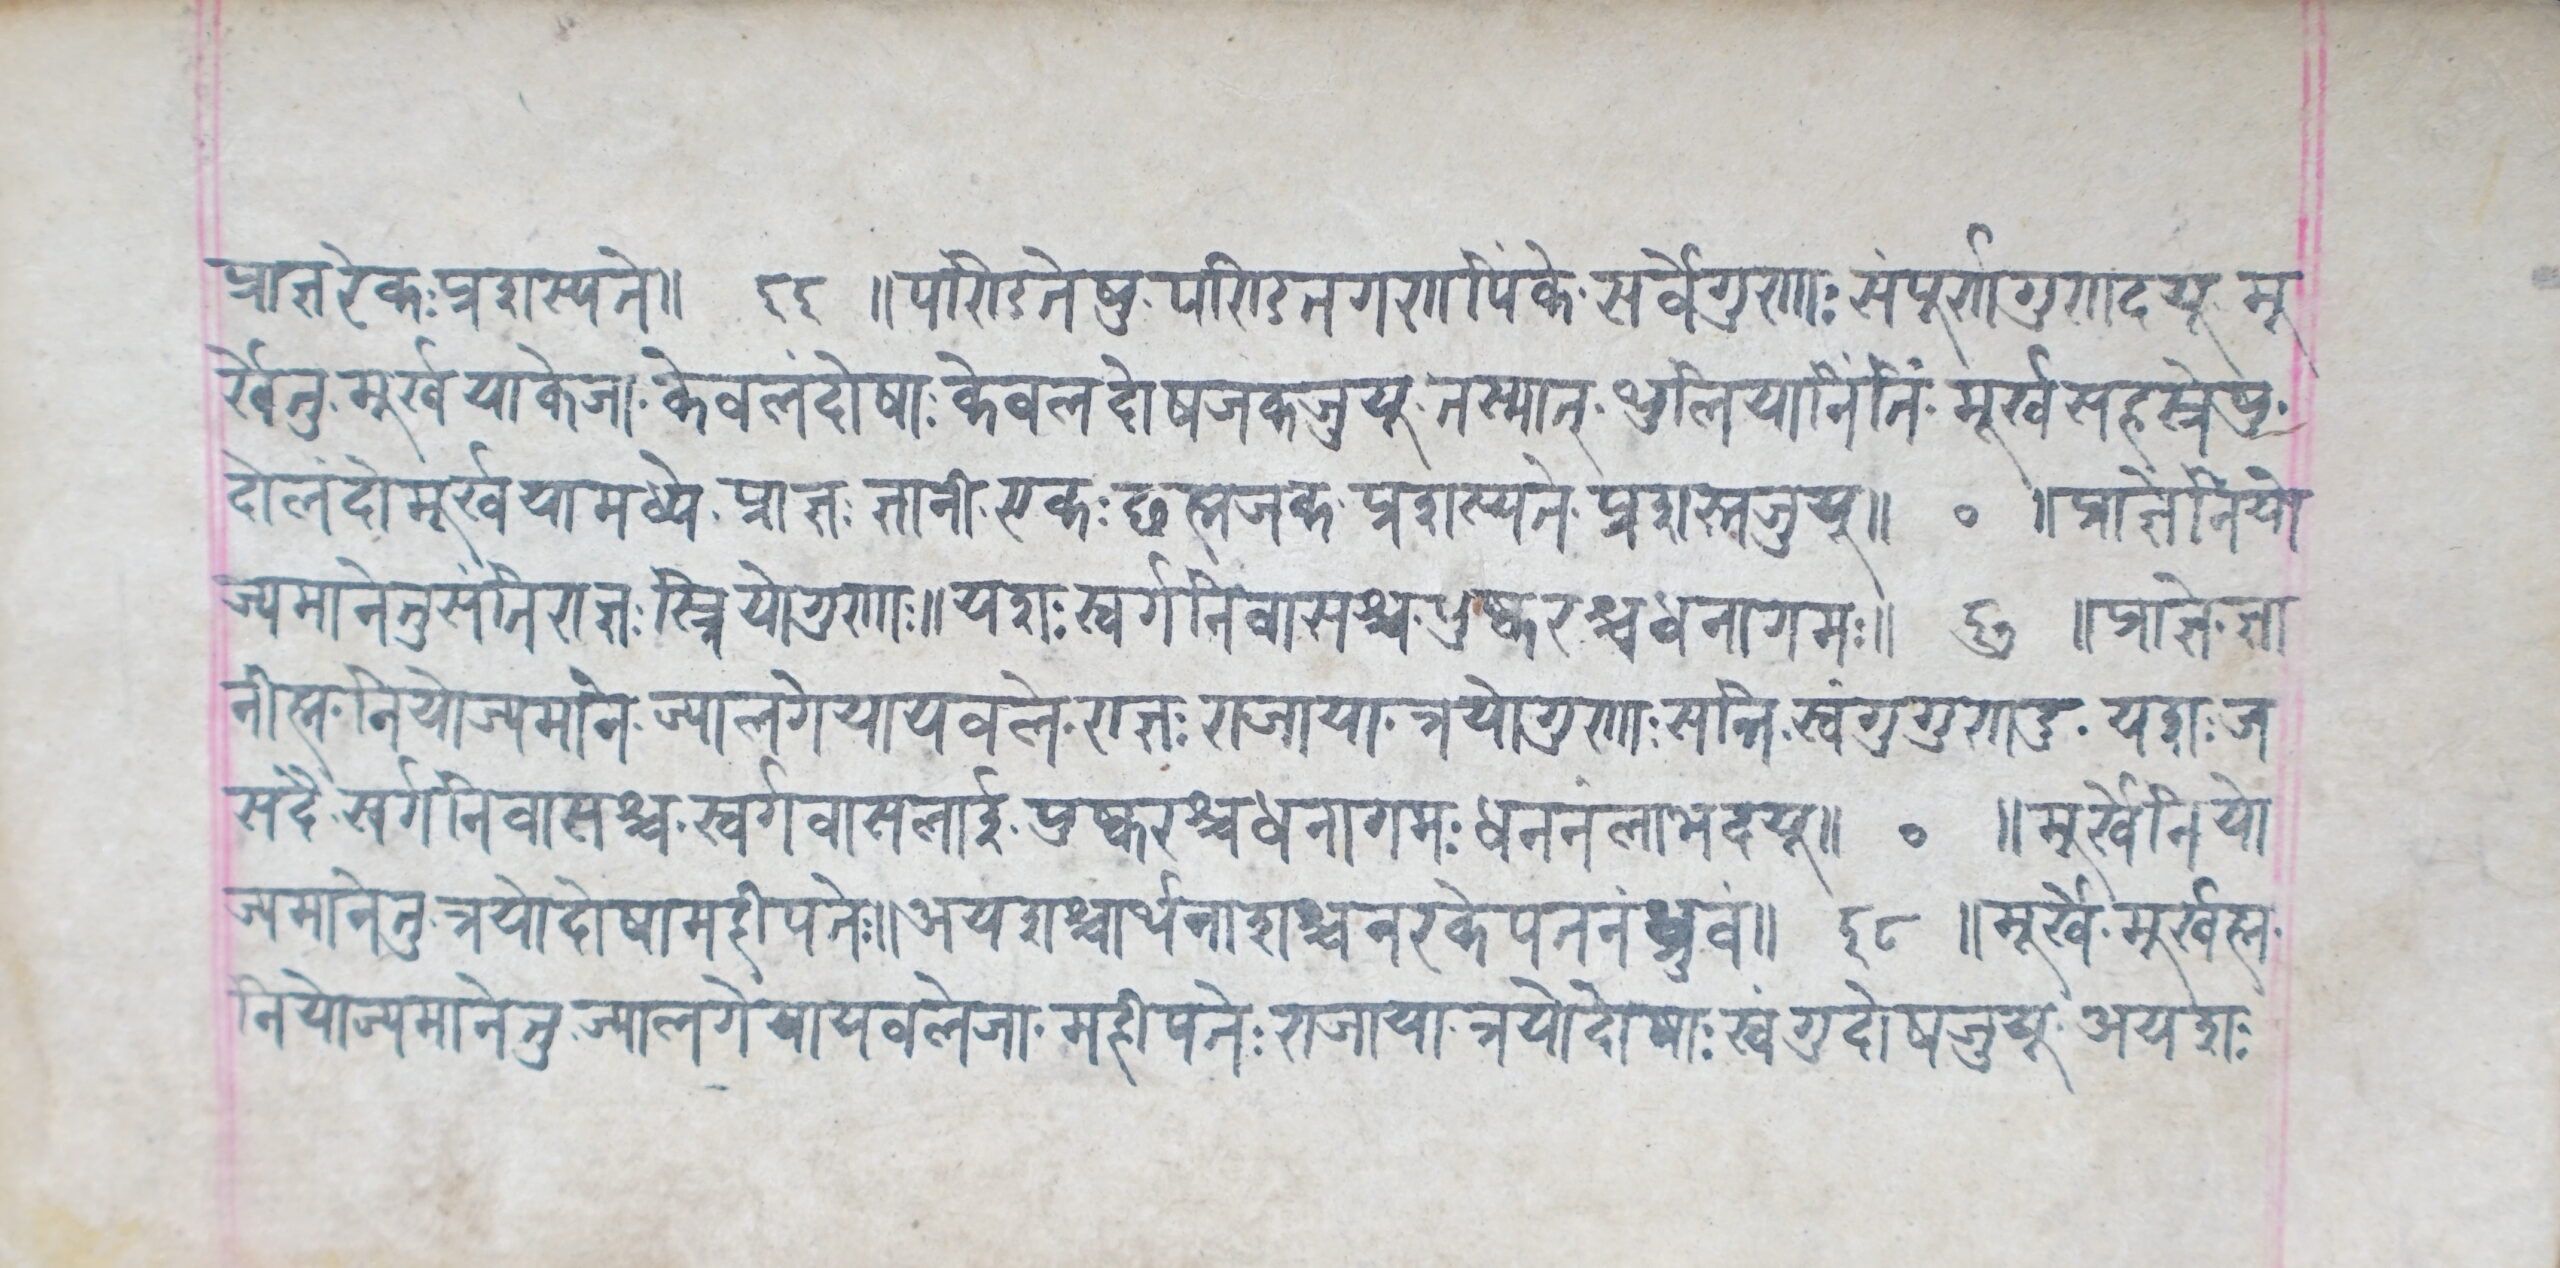 प्राज्ञरेकःप्रशस्यते॥ ६६ ॥पण्डितेषु॰पण्डितगणपिंके॰सर्वेगुणाः संपूर्णगुणदयू॰मू
र्खेतु॰मूर्खयाकेजा॰केवलंदोषाः केवलदोषजकजुयू॰तस्मात्॰थुलियानिंतिं॰मूर्खसहस्रेषु॰
दोलंदोमूर्खयामध्ये॰प्राज्ञः ज्ञानी॰एकः छह्मजक॰प्रशस्यते॰प्रशस्तजुयू॥ ० ॥प्राज्ञेनियो
ज्यमानेतुसंतिराज्ञः स्त्रियोगुणाः॥यशः स्वर्गनिवासश्च॰पुष्करश्चधनागमः॥ ६७ ॥प्राज्ञे॰ज्ञा
नीह्म॰नियोज्यमाने॰ज्यालगेयायवले॰राज्ञः राजाया॰त्रयोगुणाः सन्ति॰स्वंगुगुणदु॰यशः ज
सदै॰सर्गनिवासश्च॰स्वर्गवासलाई॰पुष्करश्चधनागमः धननंलाभदयू॥ ० ॥मूर्खेनियो
ज्यमानेतु॰त्रयोदोषामहीपतेः॥अयशश्चार्थनाशश्चनरकेपतनंध्रुवं॥ ६८ ॥मूर्खे॰मूर्खह्म॰
नियोज्यमानेतु॰ज्यालगेयायवलेजा॰महीपतेः राजाया॰त्रयोदोषाः स्वंगुदोषजुयू॰अयशः